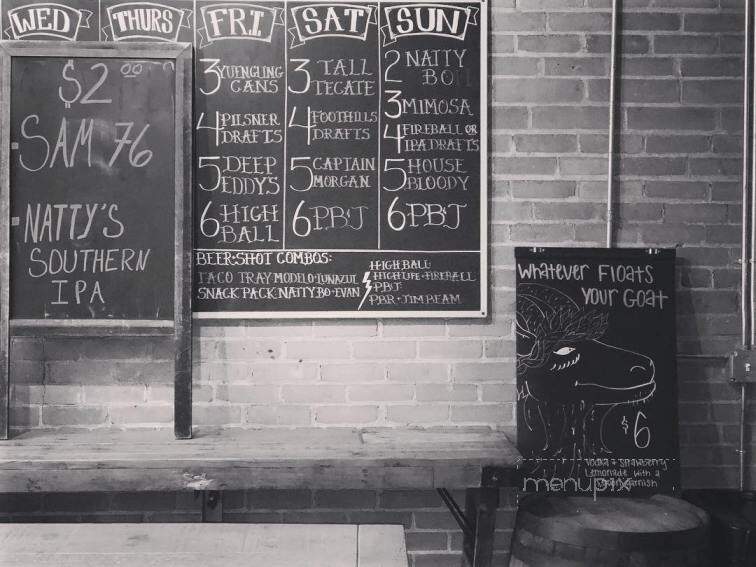 WED
THURS
FRI
SAT
SUN
$2.00
SAM 76
NATTY'S
SOUTHERN
IPA
3 YUENGLING
CANS
4 PILSNER
DRAFTS
5 DEEP
EDDYS
6 HIGH
BALL
3 TALL
TECATE
4 FOOTHILLS
DRAFTS
5 CAPTAIN
MORGAN
6 PB&J
2 NATTY
BOH
3 MIMOSA
4 FIREBALL OR
IPA DRAFTS
5 HOUSE
BLOODY
6 PB&J
BEER+SHOT COMBOS:
TACO TRAY MODELO+LUNAZUL
SNACK PACK NATTY BO+EVAN
HIGHBALL
HIGH LIFE+FIREBALL
PBJ
PBR+JIM BEAM
WHATEVER FLOATS
YOUR GOAT
$6
Vodka + Strawberry
Lemonade with a
Garnish
menupix